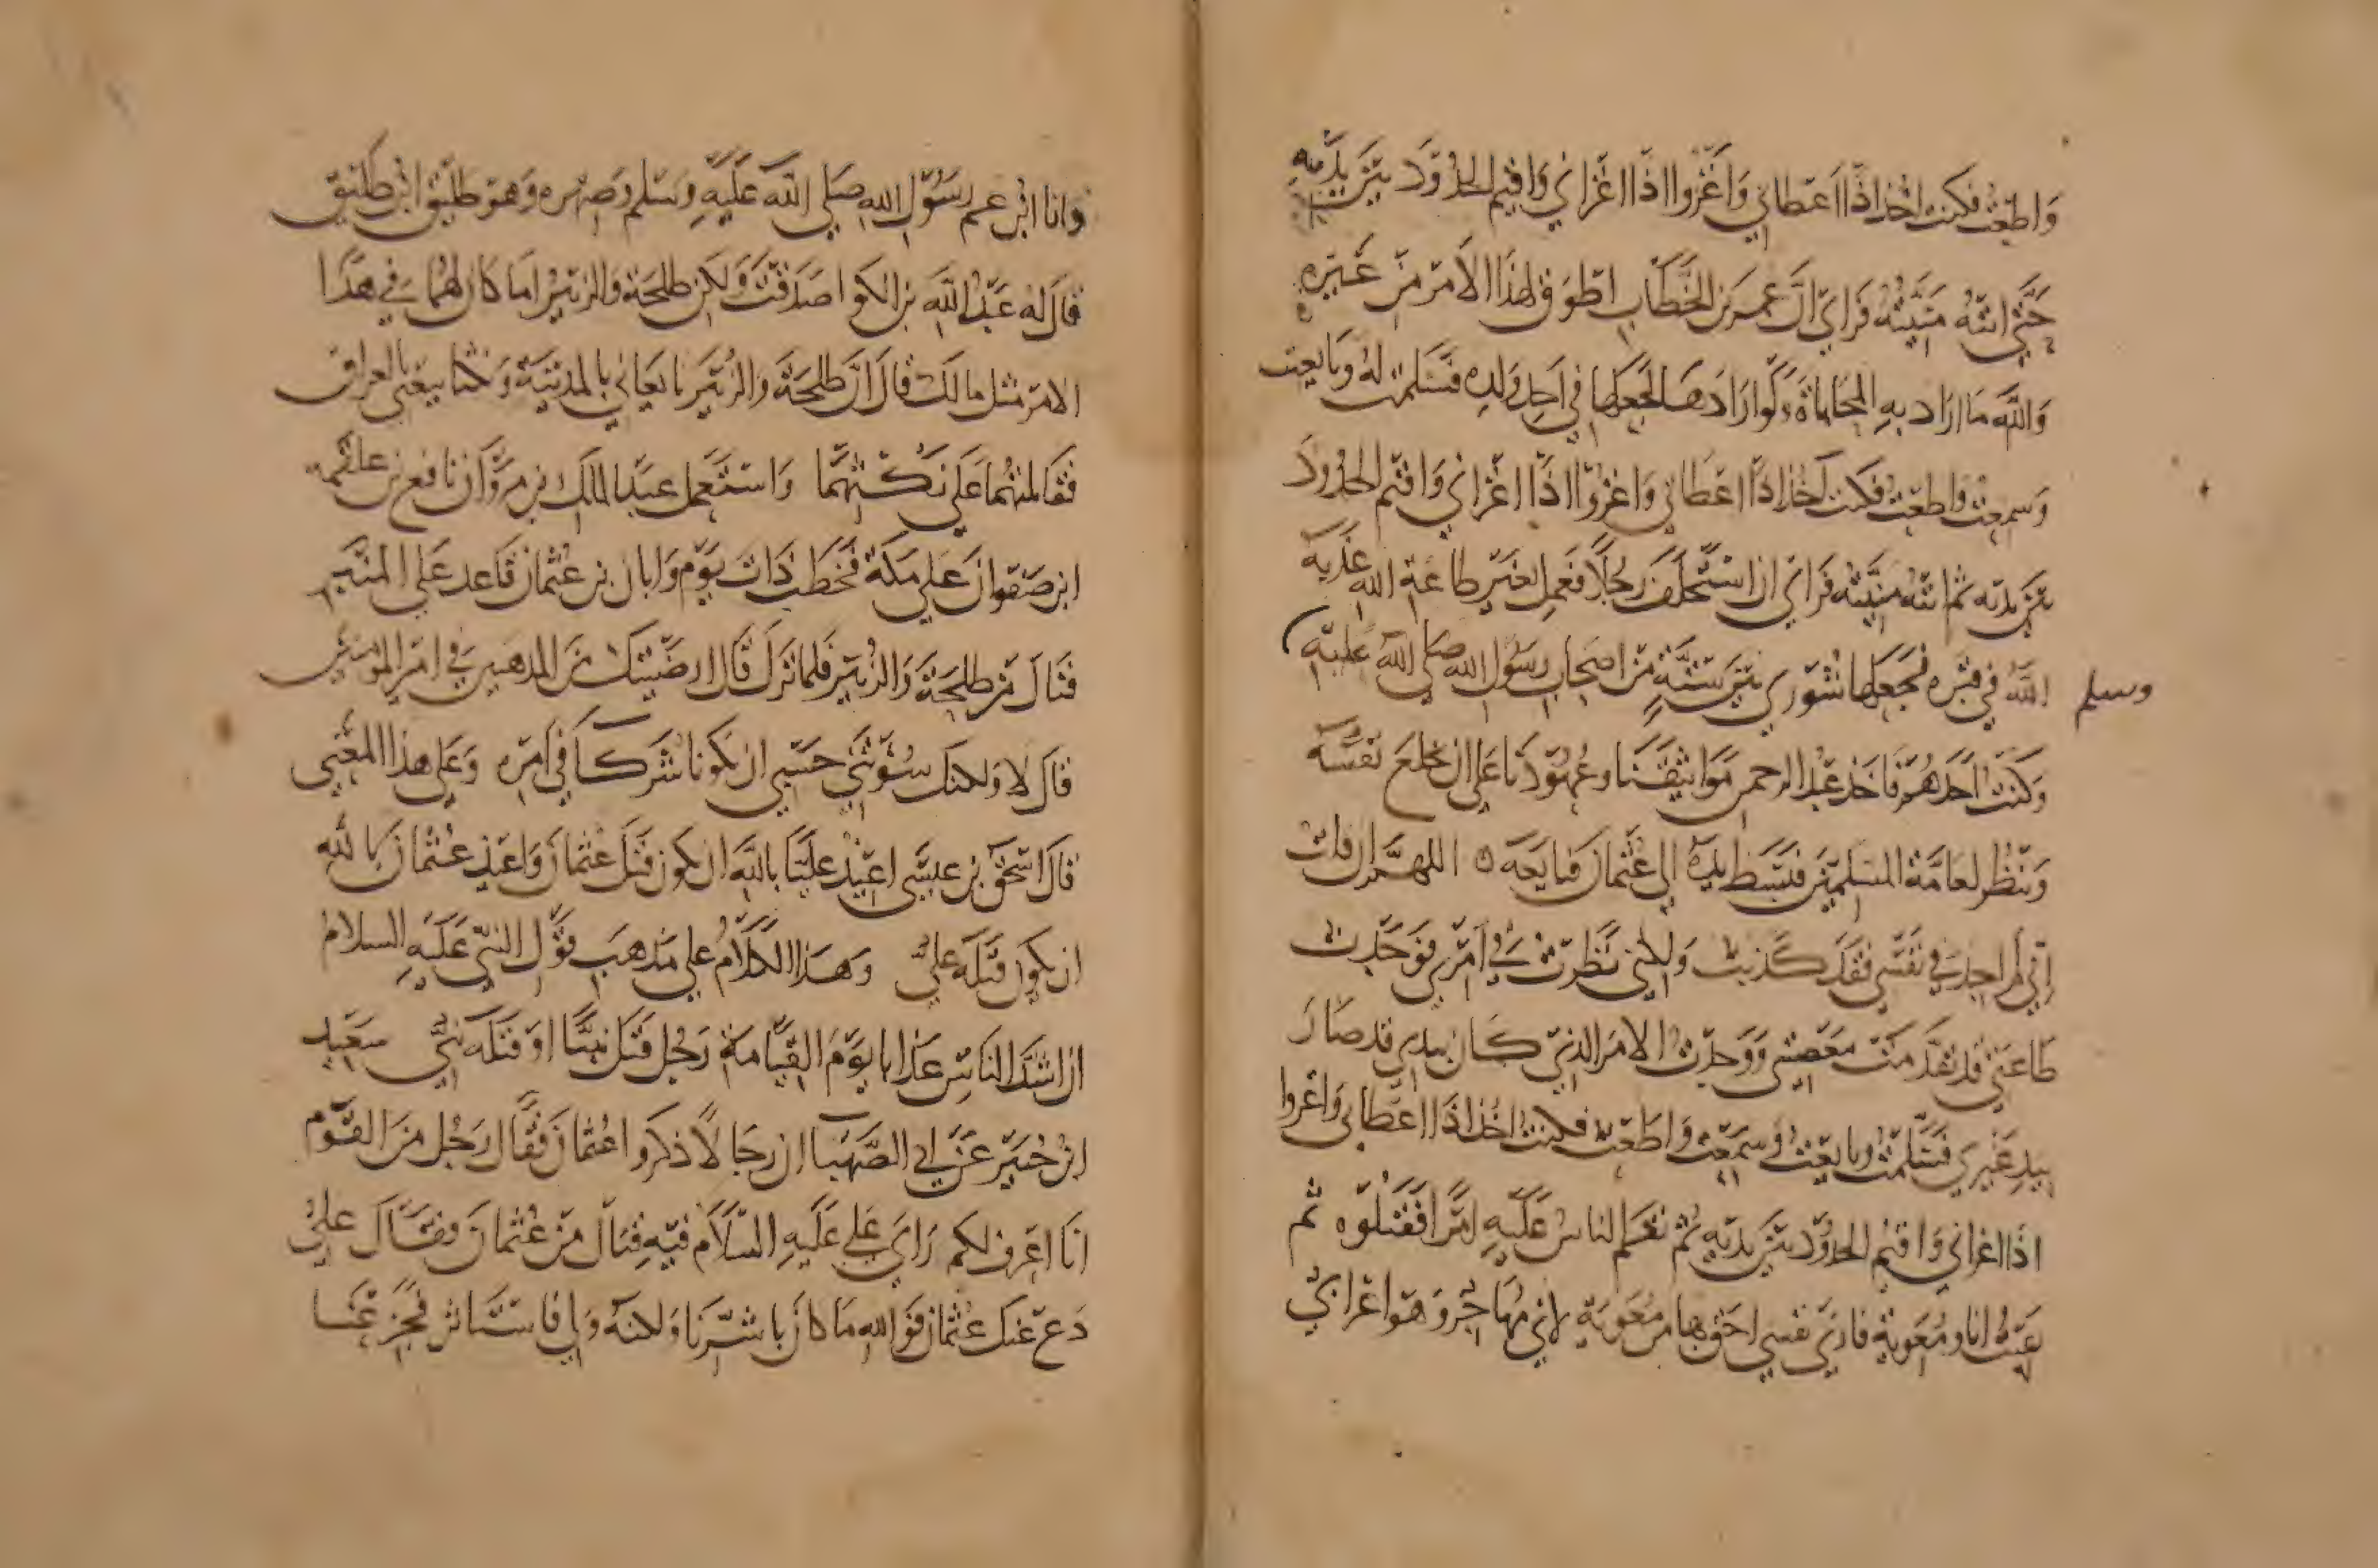 واطعت فكنت اخذ اذا اعطاني واغزوا اذا اغزاني واقيم الحدود بين يديه
حتى اتته منيته فراى ان عمر بن الخطاب اطوق لهذا الامر من غيره
والله ما اراد به المحاباة ولو ارادها لجعلها في احد ولده فسلمت له وبايعت
وسمعت واطعت فكنت اخذ اذا اعطاني واغزوا اذا اغزاني واقيم الحدود
بين يديه ثم اتته منيته فراى ان استخلف رجلا فعمل بغير طاعة الله عذبه
الله في قبره فجعلها شورى بين ستة من اصحاب رسول الله صلى الله عليه
وسلم
وكنت احدهم فاخذ عبد الرحمن مواثيقنا وعهودنا على ان يخلع نفسه
وينظر لعامة المسلمين فبسط يده الى عثمان فبايعه ه اللهم ان قلت
اني لم اجد في نفسي فقد كذبت ولكني نظرت في امري فوجدت
طاعتي قد تقدمت معصيتي ووجدت الامر الذي كان بيدي قد صار
بيد غيري فسلمت وبايعت وسمعت واطعت فكنت اخذ اذا اعطاني واغزوا
اذا اغزاني واقيم الحدود بين يديه ثم نقم الناس عليه امرا فقتلوه ثم
بقيت انا ومعوية فارى نفسي احق بها من معوية لاني مهاجر وهو اعرابي
وانا ابن عم رسول الله صلى الله عليه وسلم وصهره وهو طليق ابن طليق
قال له عبد الله بن الكوا صدقت ولكن طلحة والزبير اما كان لهما في هذا
الامر مثل مالك قال ان طلحة والزبير بايعاني بالمدينة ونكثا بيعتي بالعراق
فقاتلتهما على نكثهما واستعمل عبد الملك بن مروان نافع بن علقمة
ابن صفوان على مكة فخطب ذات يوم وابان بن عثمان قاعد على المنبر
فنال من طلحة والزبير فلما نزل قال ارضيتك من المدهنين في امير المومنين
قال لا ولكنك سؤتني حسبي ان يكونا شركا في امره وعلى هذا المعنى
قال اسحق بن عيسى اعيذ عليا بالله ان يكون قتل عثمان واعيذ عثمان بالله
ان يكون قتله علي وهذا الكلام على مذهب قول النبي عليه السلام
ان اشد الناس عذابا يوم القيامة رجل قتل نبيا او قتله نبي سعيد
ابن جبير عن ابي الصهبا ان رجالا ذكروا عثمان فقال رجل من القوم
انا اعرف لكم راي علي عليه السلام فيه فنال من عثمان وفقال علي
دع عنك عثمان فوالله ما كان باشرنا ولكنه ولي فاستاثر فجزعنا